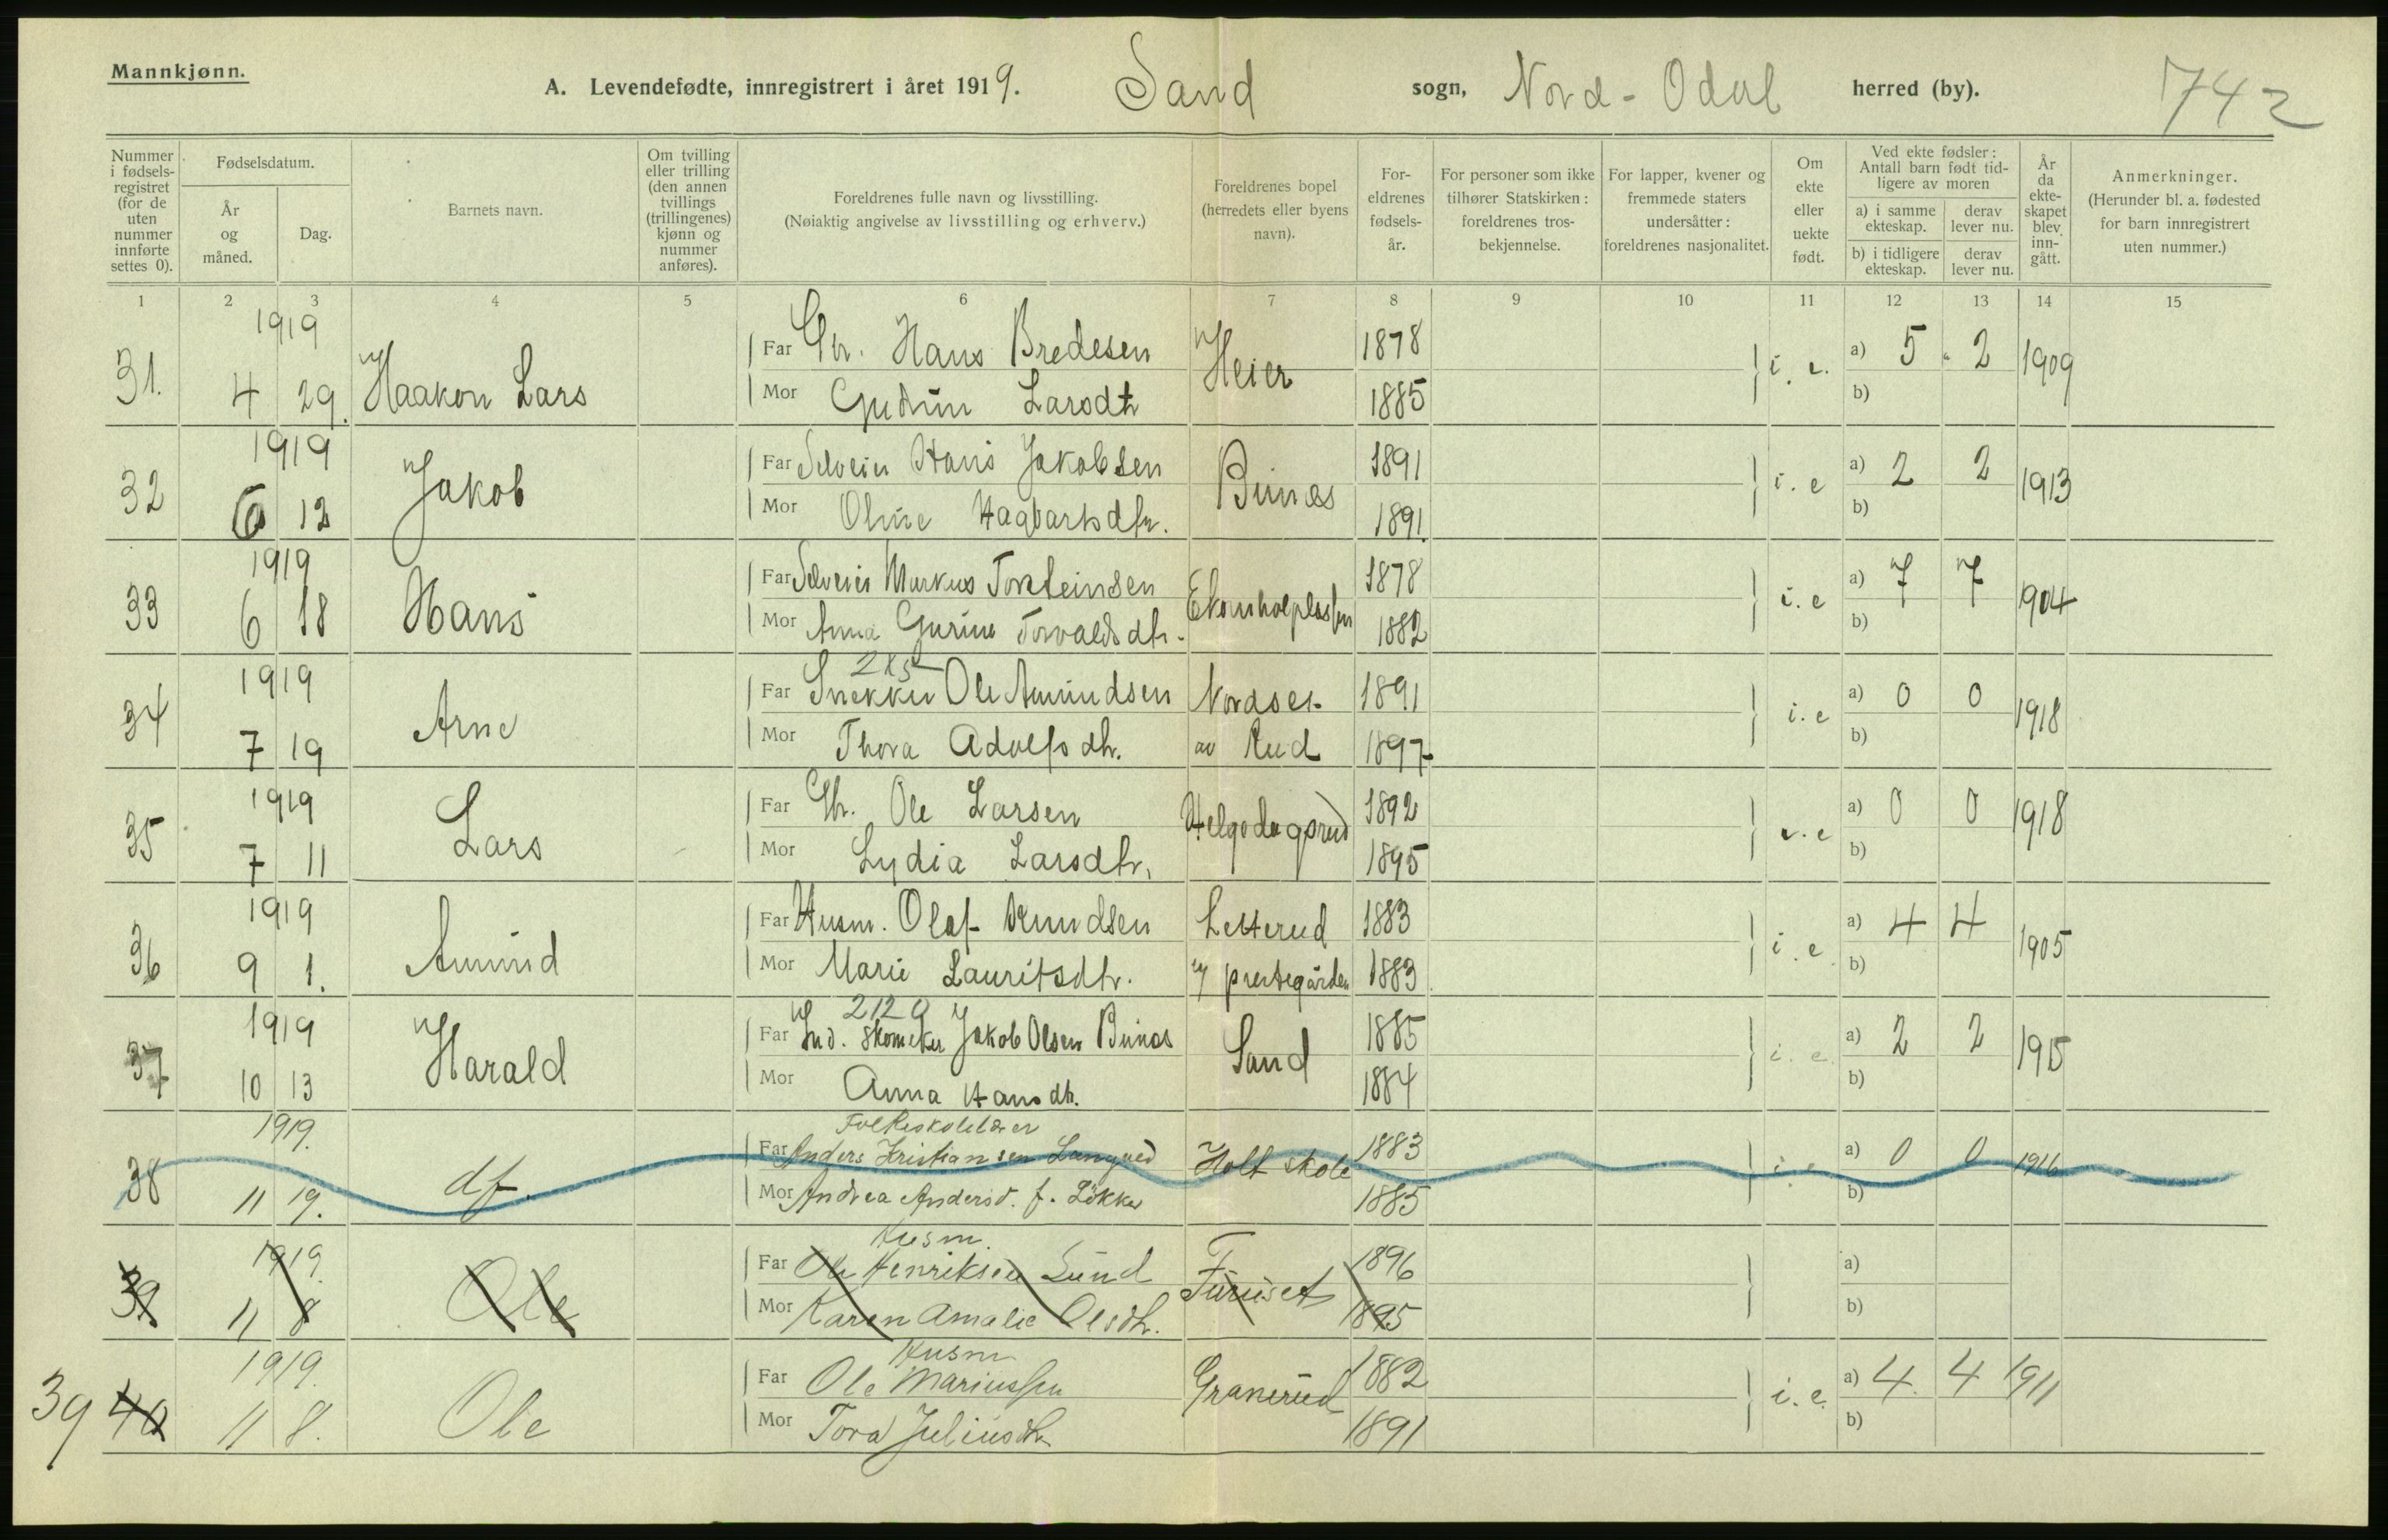 Mannkjønn.
A. Levendefødte, innregistrert i året 1919. Sand sogn, Nord-Odal herred (by). 742
Nummer i fødselsregistret (for de uten nummer innførte settes 0).
Fødselsdatum.
År og måned.
Dag.
Barnets navn.
Om tvilling eller trilling (den annen tvillings (trillingenes) kjønn og nummer anføres).
Foreldrenes fulle navn og livsstilling.
(Nøiaktig angivelse av livsstilling og erhverv.)
Foreldrenes bopel (herredets eller byens navn).
For-eldrenes fødsels-år.
For personer som ikke tilhører Statskirken: foreldrenes tros-bekjennelse.
For lapper, kvener og fremmede staters undersåtter: foreldrenes nasjonalitet.
Om ekte eller uekte født.
Ved ekte fødsler: Antall barn født tid-ligere av moren
a) i samme ekteskap.
derav lever nu.
b) i tidligere ekteskap.
derav lever nu.
År da ekte-skapet blev inn-gått.
Anmerkninger.
(Herunder bl. a. fødested for barn innregistrert uten nummer.)
1 2 3 4 5 6 7 8 9 10 11 12 13 14 15
1919
31. 4 29. Haakon Lars Far Gbr. Hans Bredesen Heier 1878 i. e. a) 5 2 1909
Mor Gudrun Larsdtr 1885 b)
1919
32 6 12 Jakob Far Selveier Hans Jakobsen Bunæs 1891 i. e a) 2 2 1913
Mor Oline Hagbartsdtr. 1891. b)
1919
33 6 18 Hans Far Selveier Markus Torsteinsen 1878 i. e a) 7 7 1904
Mor Anna Gurine Torvaldsdtr. 1882 b)
1919
34 7 19 Arne Far Snekker Ole Amundsen 1891 i. e a) 0 0 1918
Mor Thora Adolfsdtr. av Rud 1897 b)
1919
35 7 11 Lars Far Gbr. Ole Larsen Helgedagsrud 1892 a) 0 0 1918
Mor Lydia Larsdtr. 1895 b)
1919
36 9 1. Amund Far Husm. Olaf Knudsen Letterud 1883 i. e. a) 4 4 1905
Mor Marie Lauritsdtr. prestegården 1883. b)
1919 2120
37 10 13 Harald Far Ind. Skomaker Jakob Olsen Bunæs Sand 1885 i. e. a) 2 2 1915
Mor Anna Hansdtr. 1884 b)
1919. Folkeskolelærer
38 11 19. df. Far Anders Kristiansen Langved Holt skole 1883 a) 0 0 1916
Mor Andrea Andersd. f. Løkker 1885 b)
1919. Husm.
39 11 8 Ole Far Ole Henriksen Lund Furuset 1896 a)
Mor Karen Amalie Olsdtr. 1895 b)
1919. Husm
39 40 11 8. Ole Far Ole Mariussen Granerud 1882 i. e. a) 4. 4 1911
Mor Tora Juliusdtr 1891 b)